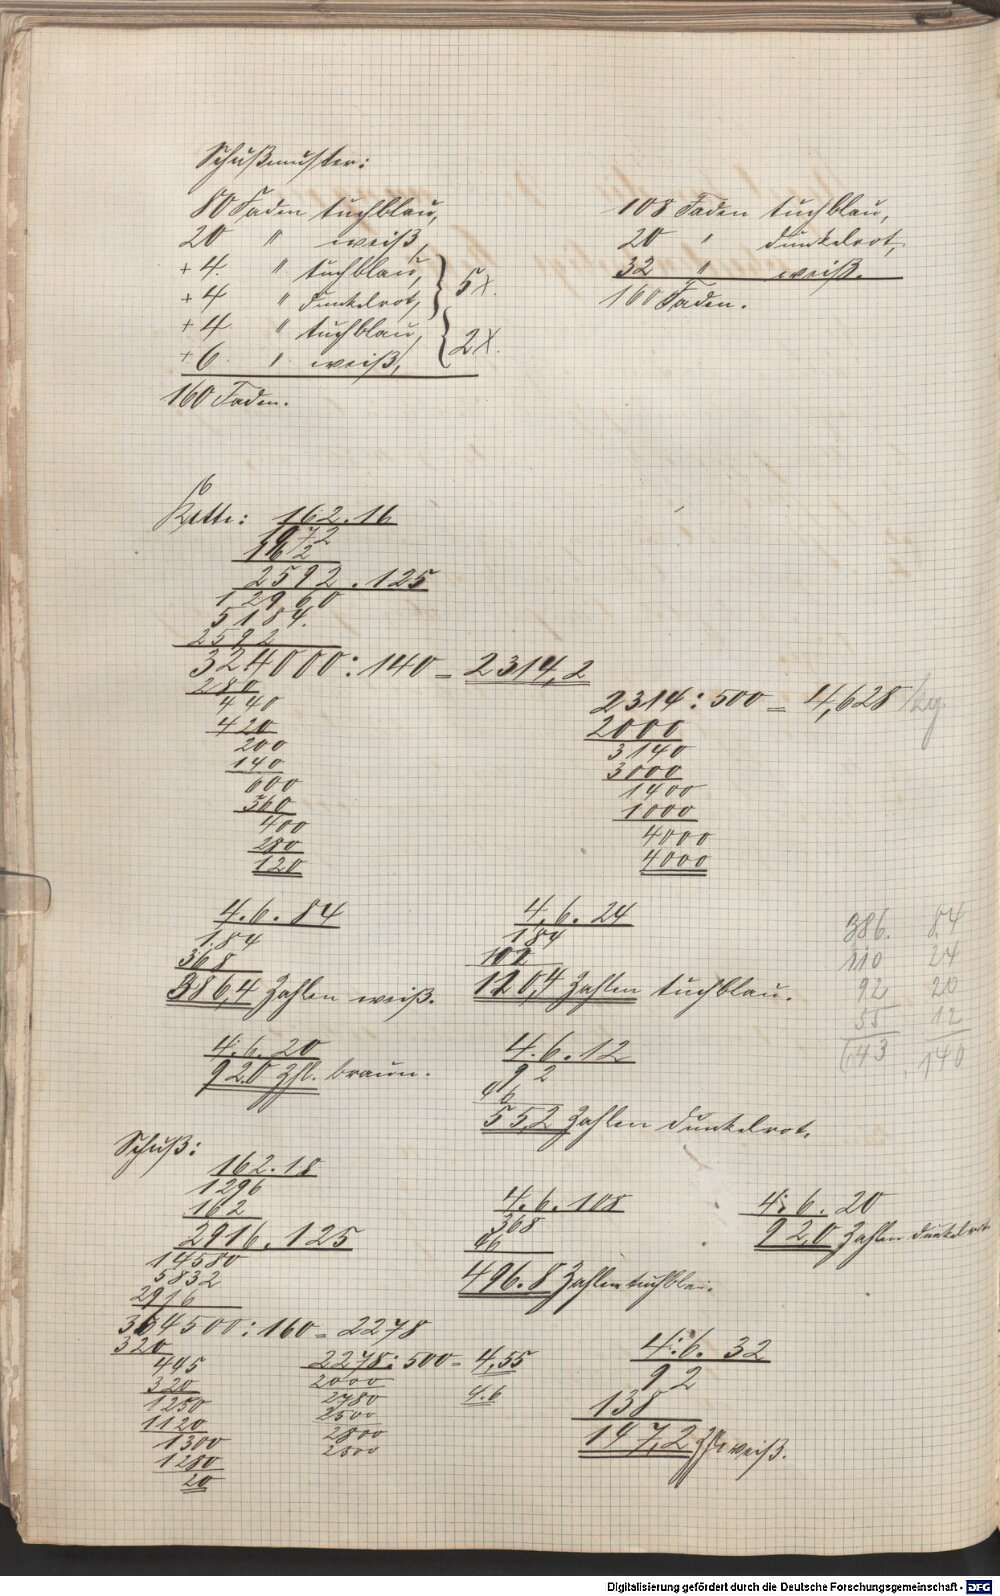 Schußmuster:
80 Faden tuchblau,
20 " weiß,
+4. " tuchblau,
+4 " dunkelrot, } 5X.
+4 " tuchblau,
+6. " weiß, } 2X.
160 Faden.
108 Faden tuchblau,
20 " dunkelrot,
32 " weiß.
160 Faden.
Kette: 162.16
972
162
2592.125
12960
5184.
2592
324000:140 = 2314,2
280
440
420
200
140
600
560
400
280
120
2314:500 = 4,628 /kg.
2000
3140
3000
1400
1000
4000
4000
4.6.84
184
368
386,4 Zahlen weiß.
4,6.24
184
92
110,4 Zahlen tuchblau.
386. 84
110 24
92 20
55 12
643. 140
4.6.20
92.0 Zhl. braun.
4.6.12
92
46
55,2 Zahlen dunkelrot.
Schuß:
162.18
1296
162
2916.125
14580
5832
2916
364500:160 = 2278
320
445
320
1250
1120
1300
1280
20
2278:500 = 4,55
2000
2780
2500
2800
2500
4.6
4.6.108
368
46
496.8 Zahlen tuchblau.
4.6.20
92,0 Zahlen dunkelrot
4.6.32
92
138
147,2 Zhl. weiß.
Digitalisierung gefördert durch die Deutsche Forschungsgemeinschaft - DFG